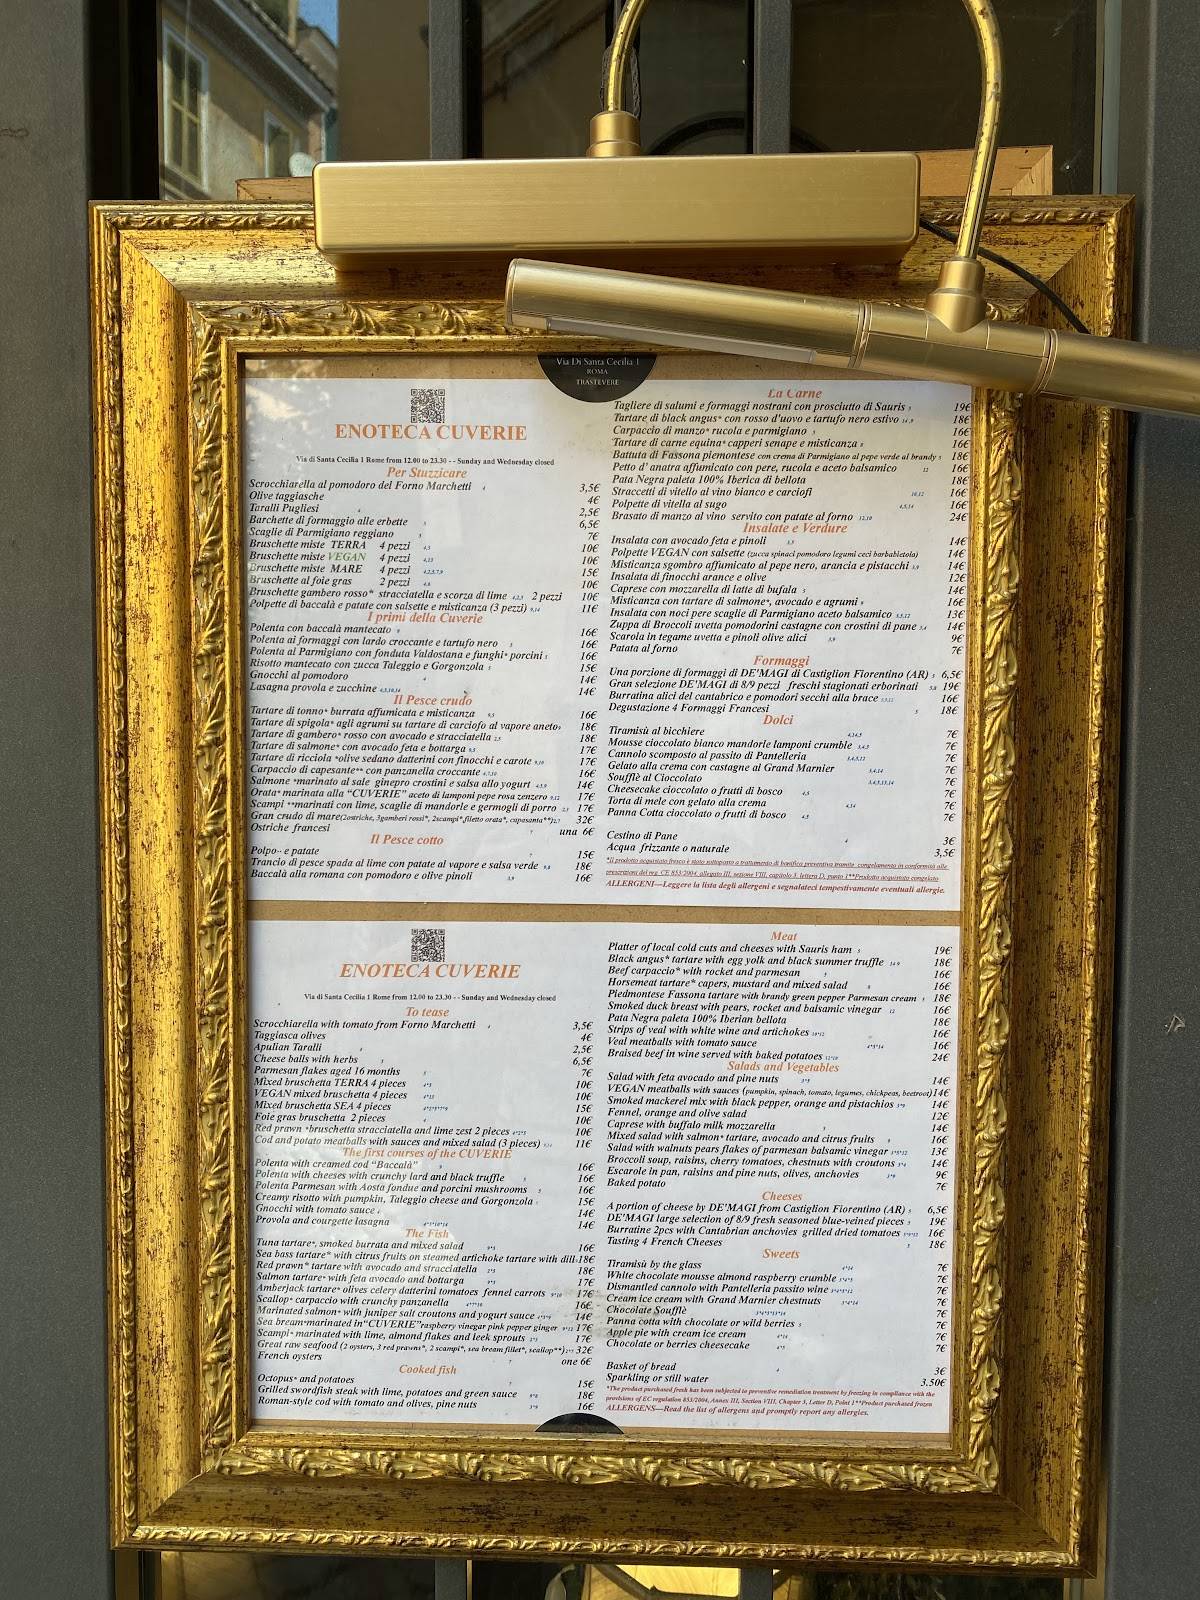 Via Di Santa Cecilia 1
ROMA
TRASTEVERE
ENOTECA CUVERIE
Via di Santa Cecilia 1 Rome from 12.00 to 23.30 - - Sunday and Wednesday closed
Per Stuzzicare
Scrocchiarella al pomodoro del Forno Marchetti 4 3,5€
Olive taggiasche 4€
Taralli Pugliesi 4 2,5€
Barchette di formaggio alle erbette 6,5€
Scaglie di Parmigiano reggiano 7€
Bruschette miste TERRA 4 pezzi 10€
Bruschette miste VEGAN 4 pezzi 10€
Bruschette miste MARE 4 pezzi 15€
Bruschette al foie gras 2 pezzi 10€
Bruschette gambero rosso* stracciatella e scorza di lime 2 pezzi 10€
Polpette di baccalà e patate con salsette e misticanza (3 pezzi) 11€
I primi della Cuverie
Polenta con baccalà mantecato 16€
Polenta ai formaggi con lardo croccante e tartufo nero 16€
Polenta al Parmigiano con fonduta Valdostana e funghi* porcini 16€
Risotto mantecato con zucca Taleggio e Gorgonzola 15€
Gnocchi al pomodoro 14€
Lasagna provola e zucchine 14€
Il Pesce crudo
Tartare di tonno* burrata affumicata e misticanza 16€
Tartare di spigola* agli agrumi su tartare di carciofo al vapore aneto 18€
Tartare di gambero* rosso con avocado e stracciatella 18€
Tartare di salmone* con avocado feta e bottarga 17€
Tartare di ricciola *olive sedano datterini con finocchi e carote 17€
Carpaccio di capesante** con panzanella croccante 16€
Salmone *marinato al sale ginepro crostini e salsa allo yogurt 14€
Orata* marinata alla "CUVERIE" aceto di lamponi pepe rosa zenzero 17€
Scampi **marinati con lime, scaglie di mandorle e germogli di porro 17€
Gran crudo di mare(2ostriche, 3gamberi rossi*, 2scampi*,filetto orata*, capasanta**) 32€
Ostriche francesi una 6€
Il Pesce cotto
Polpo e patate 15€
Trancio di pesce spada al lime con patate al vapore e salsa verde 18€
Baccalà alla romana con pomodoro e olive pinoli 16€
La Carne
Tagliere di salumi e formaggi nostrani con prosciutto di Sauris 19€
Tartare di black angus* con rosso d'uovo e tartufo nero estivo 18€
Carpaccio di manzo* rucola e parmigiano 16€
Tartare di carne equina* capperi senape e misticanza 16€
Battuta di Fassona piemontese con crema di Parmigiano al pepe verde al brandy 18€
Petto d' anatra affumicato con pere, rucola e aceto balsamico 12 16€
Pata Negra paleta 100% Iberica di bellota 18€
Straccetti di vitello al vino bianco e carciofi 10,12 16€
Polpette di vitella al sugo 16€
Brasato di manzo al vino servito con patate al forno 12,10 24€
Insalate e Verdure
Insalata con avocado feta e pinoli 14€
Polpette VEGAN con salsette (zucca spinaci pomodoro legumi ceci barbabietola) 14€
Misticanza sgombro affumicato al pepe nero, arancia e pistacchi 14€
Insalata di finocchi arance e olive 12€
Caprese con mozzarella di latte di bufala 14€
Misticanza con tartare di salmone*, avocado e agrumi 16€
Insalata con noci pere scaglie di Parmigiano aceto balsamico 13€
Zuppa di Broccoli uvetta pomodorini castagne con crostini di pane 14€
Scarola in tegame uvetta e pinoli olive alici 9€
Patata al forno 7€
Formaggi
Una porzione di formaggi di DE'MAGI di Castiglion Fiorentino (AR) 6,5€
Gran selezione DE'MAGI di 8/9 pezzi freschi stagionati erborinati 19€
Burratina alici del cantabrico e pomodori secchi alla brace 16€
Degustazione 4 Formaggi Francesi 18€
Dolci
Tiramisù al bicchiere 7€
Mousse cioccolato bianco mandorle lamponi crumble 7€
Cannolo scomposto al passito di Pantelleria 7€
Gelato alla crema con castagne al Grand Marnier 7€
Soufflè al Cioccolato 7€
Cheesecake cioccolato o frutti di bosco 7€
Torta di mele con gelato alla crema 7€
Panna Cotta cioccolato o frutti di bosco 7€
Cestino di Pane 4 3€
Acqua frizzante o naturale 3,5€
*Il prodotto acquistato fresco è stato sottoposto a trattamento di bonifica preventiva tramite congelamento in conformità alle
prescrizioni del reg CE 853/2004, allegato III, sezione VIII, capitolo 3, lettera D, punto 1**Prodotto acquistato congelato
ALLERGENI—Leggere la lista degli allergeni e segnalateci tempestivamente eventuali allergie.
ENOTECA CUVERIE
Via di Santa Cecilia 1 Rome from 12.00 to 23.30 - - Sunday and Wednesday closed
To tease
Scrocchiarella with tomato from Forno Marchetti 3,5€
Taggiasca olives 4€
Apulian Taralli 2,5€
Cheese balls with herbs 6,5€
Parmesan flakes aged 16 months 7€
Mixed bruschetta TERRA 4 pieces 10€
VEGAN mixed bruschetta 4 pieces 10€
Mixed bruschetta SEA 4 pieces 15€
Foie gras bruschetta 2 pieces 10€
Red prawn *bruschetta stracciatella and lime zest 2 pieces 10€
Cod and potato meatballs with sauces and mixed salad (3 pieces) 11€
The first courses of the CUVERIE
Polenta with creamed cod "Baccalà" 16€
Polenta with cheeses with crunchy lard and black truffle 16€
Polenta Parmesan with Aosta fondue and porcini mushrooms 16€
Creamy risotto with pumpkin, Taleggio cheese and Gorgonzola 15€
Gnocchi with tomato sauce 14€
Provola and courgette lasagna 14€
The Fish
Tuna tartare*, smoked burrata and mixed salad 16€
Sea bass tartare* with citrus fruits on steamed artichoke tartare with dill 18€
Red prawn* tartare with avocado and stracciatella 18€
Salmon tartare* with feta avocado and bottarga 17€
Amberjack tartare* olives celery datterini tomatoes fennel carrots 17€
Scallop* carpaccio with crunchy panzanella 16€
Marinated salmon* with juniper salt croutons and yogurt sauce 14€
Sea bream*marinated in"CUVERIE"raspberry vinegar pink pepper ginger 17€
Scampi*marinated with lime, almond flakes and leek sprouts 17€
Great raw seafood (2 oysters, 3 red prawns*, 2 scampi*, sea bream fillet*, scallop**) 32€
French oysters one 6€
Cooked fish
Octopus* and potatoes 15€
Grilled swordfish steak with lime, potatoes and green sauce 18€
Roman-style cod with tomato and olives, pine nuts 16€
Meat
Platter of local cold cuts and cheeses with Sauris ham 19€
Black angus* tartare with egg yolk and black summer truffle 18€
Beef carpaccio* with rocket and parmesan 16€
Horsemeat tartare* capers, mustard and mixed salad 16€
Piedmontese Fassona tartare with brandy green pepper Parmesan cream 18€
Smoked duck breast with pears, rocket and balsamic vinegar 12 16€
Pata Negra paleta 100% Iberian bellota 18€
Strips of veal with white wine and artichokes 16€
Veal meatballs with tomato sauce 16€
Braised beef in wine served with baked potatoes 24€
Salads and Vegetables
Salad with feta avocado and pine nuts 14€
VEGAN meatballs with sauces (pumpkin, spinach, tomato, legumes, chickpeas, beetroot) 14€
Smoked mackerel mix with black pepper, orange and pistachios 14€
Fennel, orange and olive salad 12€
Caprese with buffalo milk mozzarella 14€
Mixed salad with salmon* tartare, avocado and citrus fruits 16€
Salad with walnuts pears flakes of parmesan balsamic vinegar 13€
Broccoli soup, raisins, cherry tomatoes, chestnuts with croutons 14€
Escarole in pan, raisins and pine nuts, olives, anchovies 9€
Baked potato 7€
Cheeses
A portion of cheese by DE'MAGI from Castiglion Fiorentino (AR) 6,5€
DE'MAGI large selection of 8/9 fresh seasoned blue-veined pieces 19€
Burratine 2pcs with Cantabrian anchovies grilled dried tomatoes 16€
Tasting 4 French Cheeses 18€
Sweets
Tiramisù by the glass 7€
White chocolate mousse almond raspberry crumble 7€
Dismantled cannolo with Pantelleria passito wine 7€
Cream ice cream with Grand Marnier chestnuts 7€
Chocolate Soufflè 7€
Panna cotta with chocolate or wild berries 7€
Apple pie with cream ice cream 7€
Chocolate or berries cheesecake 7€
Basket of bread 3€
Sparkling or still water 3.50€
*The product purchased fresh has been subjected to preventive remediation treatment by freezing in compliance with the
provisions of EC regulation 853/2004, Annex III, Section VIII, Chapter 3, Letter D, Point 1**Product purchased frozen
ALLERGENS—Read the list of allergens and promptly report any allergies.